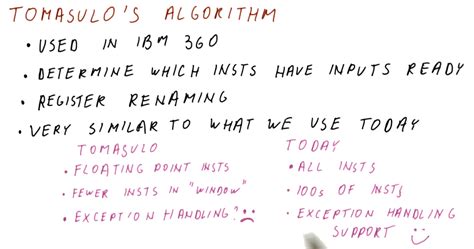 TOMASULO'S ALGORITHM
• USED IN IBM 360
• DETERMINE WHICH INSTS HAVE INPUTS READY
• REGISTER RENAMING
• VERY SIMILAR TO WHAT WE USE TODAY
TOMASULO
• FLOATING POINT INSTS
• FEWER INSTS IN "WINDOW"
• EXCEPTION HANDLING?
TODAY
• ALL INSTS
• 100s OF INSTS
• EXCEPTION HANDLING
SUPPORT